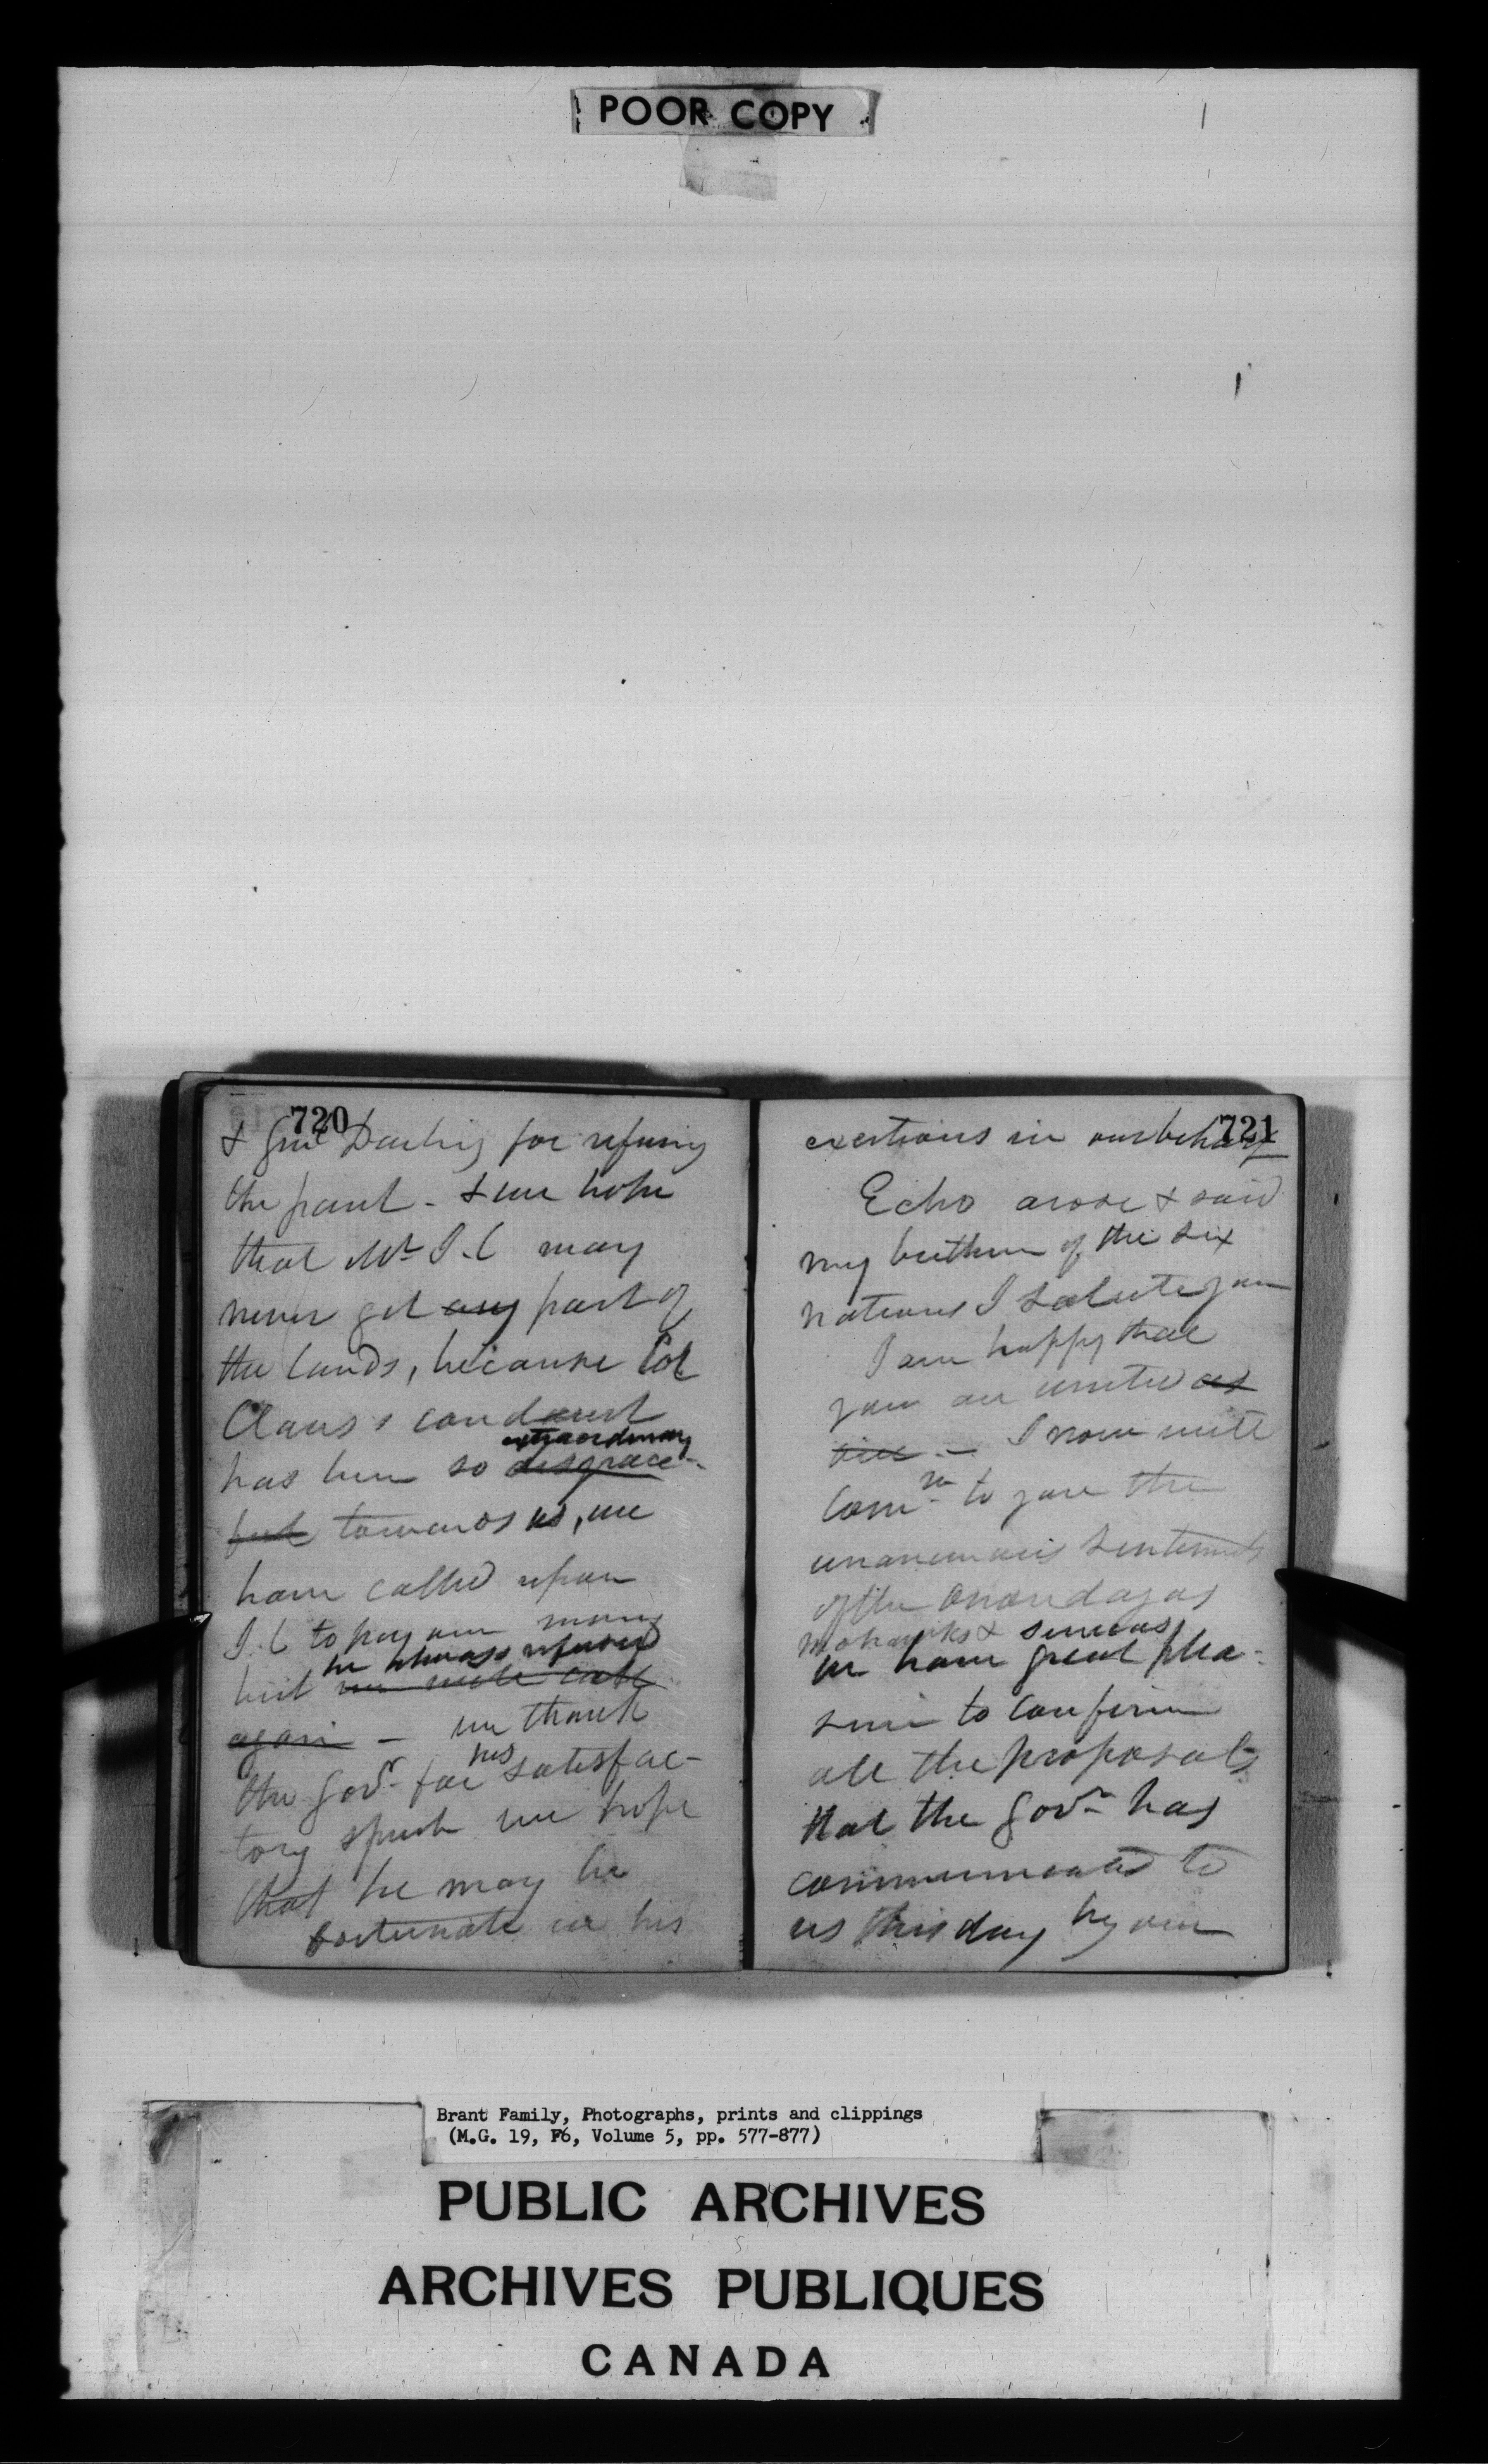 POOR COPY
720
& Genl Darling for refusing
the pant - & we hope
that Mr J.C may
never get any part of
the lands, because Col
Claus's conduct
extraordinary
has been so disgrace-
ful towards us, we
have called upon
J.C to pay our money
he always refused
but we will call
again - we thank
the Govr for his satisfac-
tory speech we hope
that he may be
fortunate in his
721
exertions in our behalf
Echo arose & said
my brethren of the six
nations I salute you
I am happy that
you are united as
I now will
comn to you the
unanimous sentiments
of the Onondagas
mohawks & senecas
we have great plea-
sure to confirm
all the proposals
that the Govr has
communicated to
us this day by our
Brant Family, Photographs, prints and clippings
(M.G. 19, F6, Volume 5, pp. 577-877)
PUBLIC ARCHIVES
ARCHIVES PUBLIQUES
CANADA